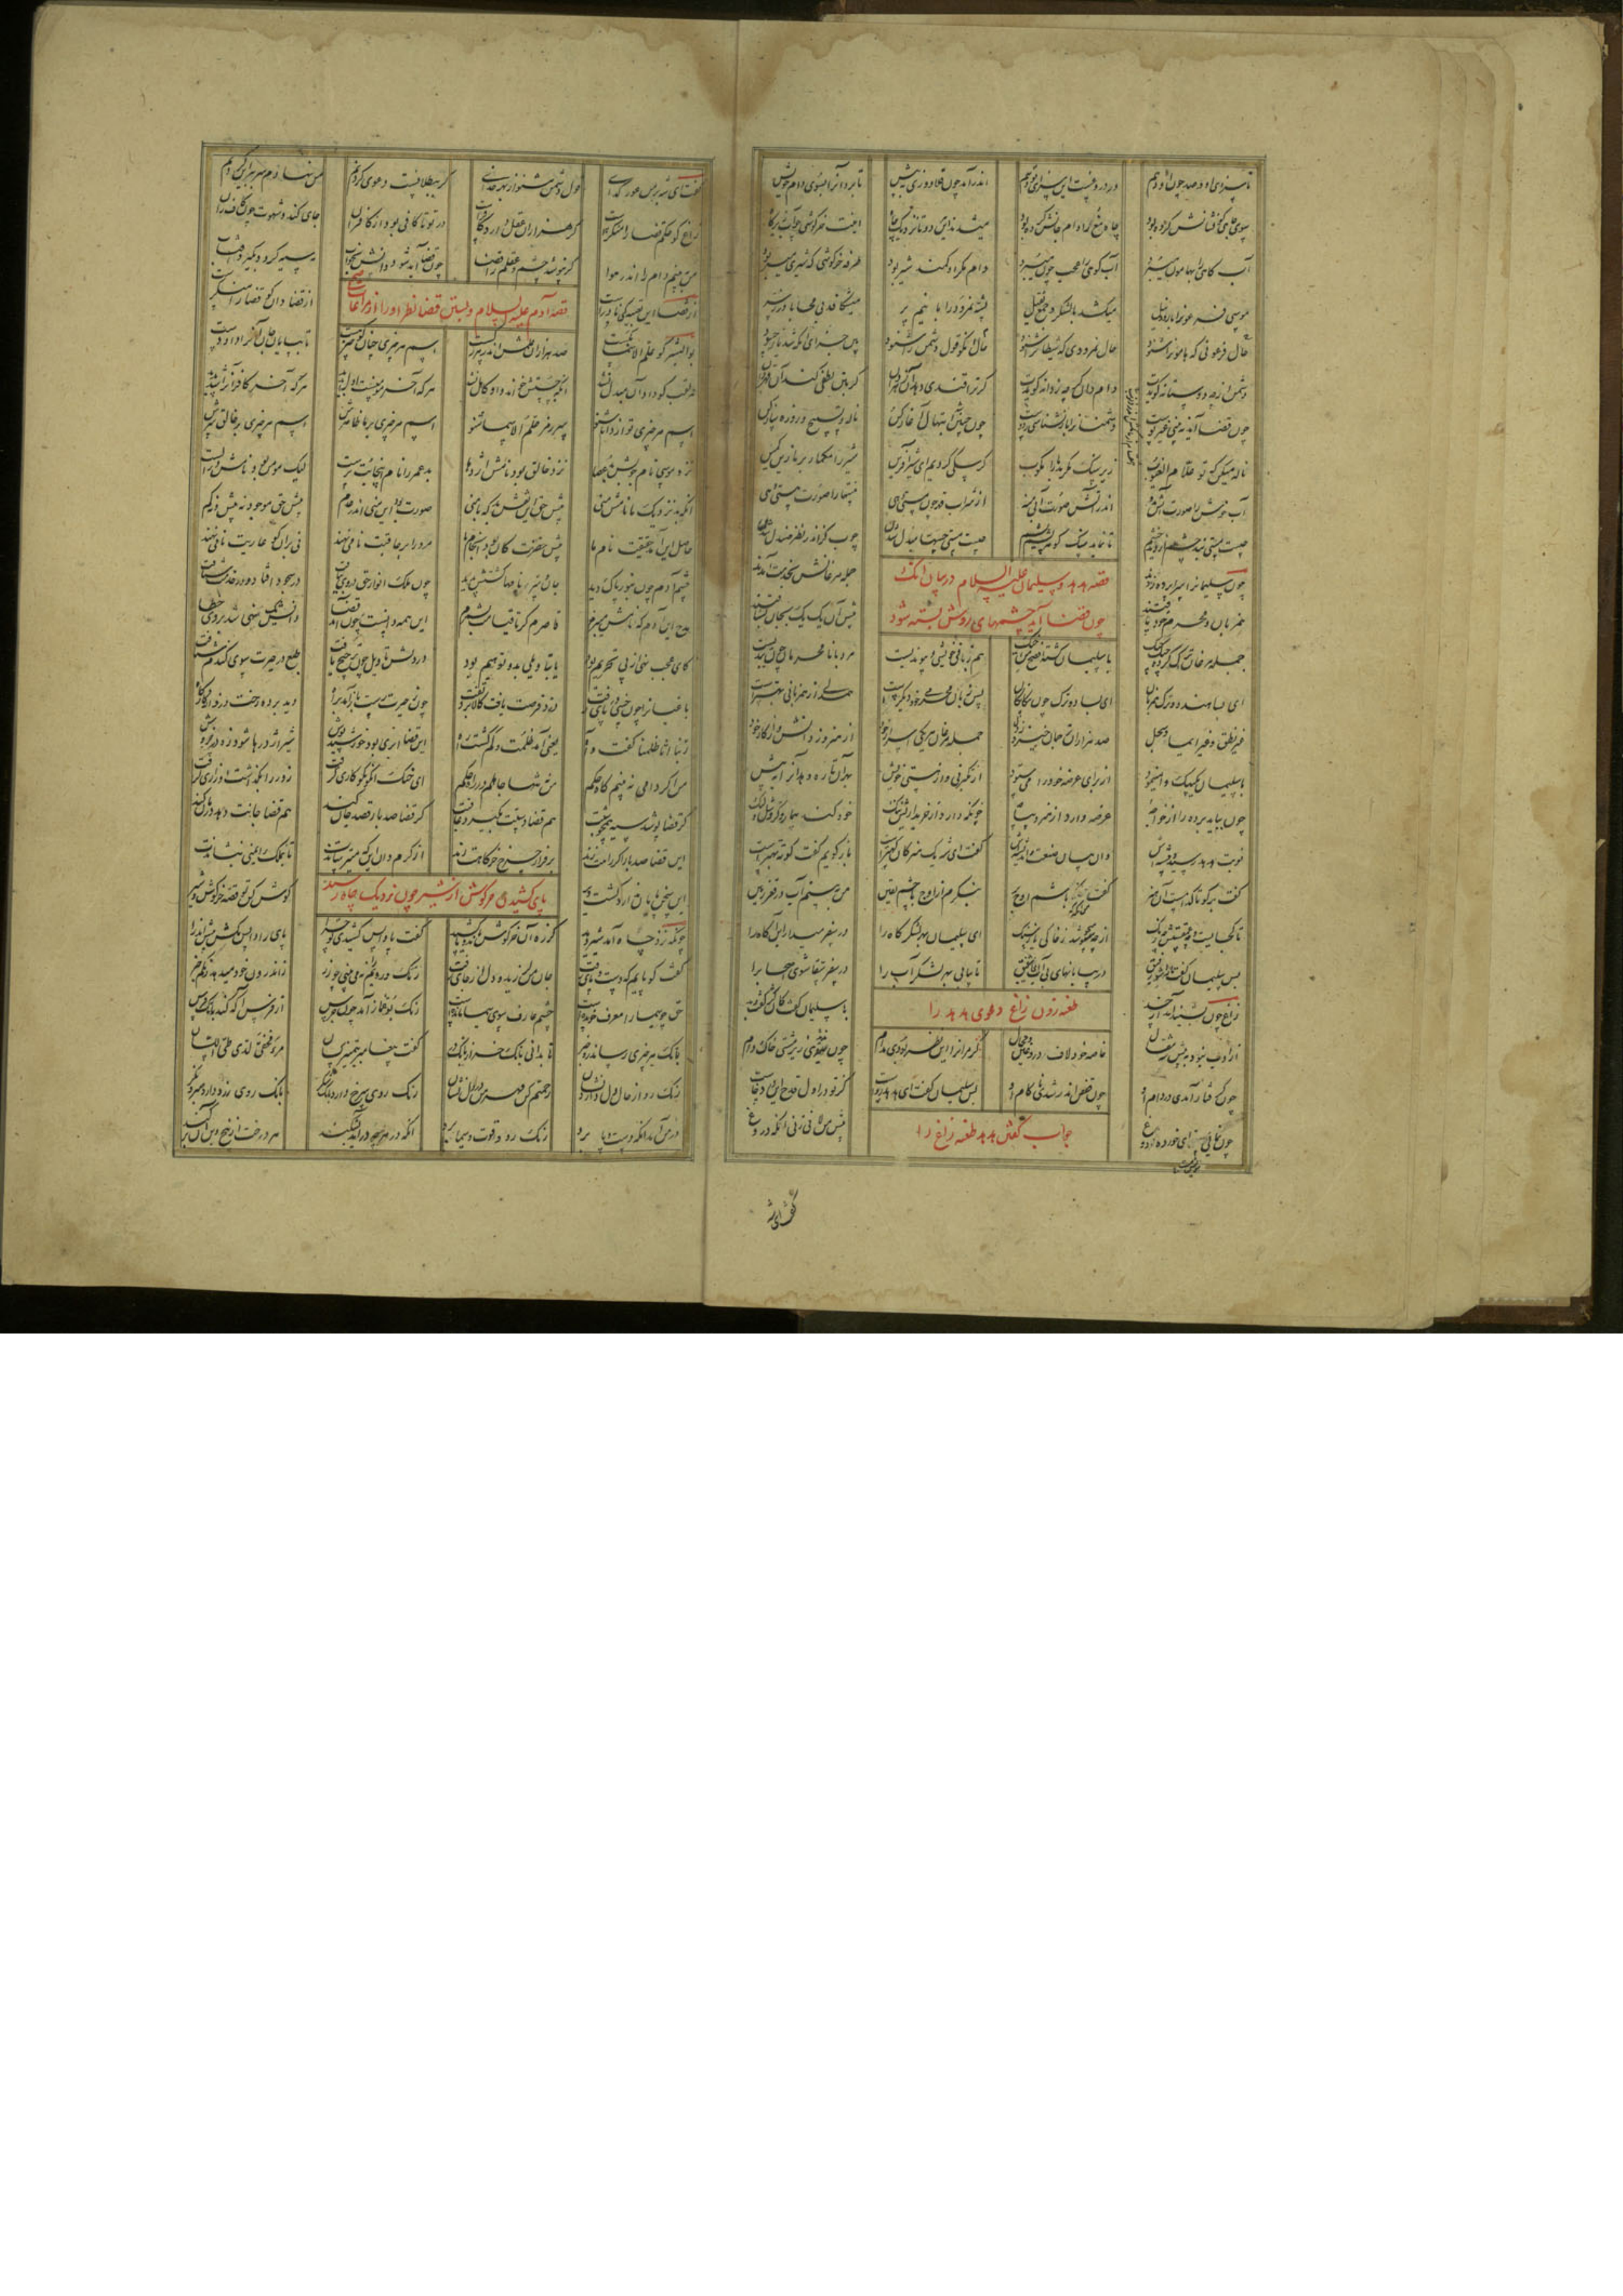 تا سزای او و صد چون او دهم ور دروغست این سزای تو دهم اندر آمد چون قلاوزی بپیش تا برد او را بسوی دام خویش
سوی چاهی کو نشانش کرده بود چاه مغ را دام جانش کرده بود میشدند این هر دو تا نزدیک چاه اینت خرگوشی چو آب زیر کاه
آب کاهی را بهامون میبرد آب کوهی را عجب چون میبرد دام مکر او کمند شیر بود طرفه خرگوشی که شیری میربود
موسی فرعون را با رود نیل میکشد با لشکر و جمع ثقیل پشه نمرود را با نیم پر میشکافد بی محابا درز سر
حال فرعونی که هامان را شنود حال نمرودی که شیطان را شنود حال آنکو قول دشمن را شنود بین جزای آنکه شد یار حسود
دشمن ار چه دوستانه گویدت دام دان گر چه ز دانه گویدت گر ترا قندی دهد آن زهر دان گر بتن لطفی کند آن قهر دان
چون قضا آید نه بینی غیر پوست دشمنانرا باز نشناسی ز دوست چون چنین شد ابتهال آغاز کن ناله و تسبیح و روزه ساز کن
ناله میکن کی تو علام الغیوب زیر سنگ مکر بد ما را مکوب گر سگی کردیم ای شیر آفرین شیر را مگمار بر ما زین کمین
آب خوش را صورت آتش مده اندر آتش صورت آبی منه از شراب قهر چون مستی دهی نیستها را صورت هستی دهی
چیست مستی بند چشم از دید چشم تا نماید سنگ گوهر پشم یشم چیست مستی حسها مبدل شدن چوب گز اندر نظر صندل شدن
چون سلیمانرا سراپرده زدند جمله مرغانش بخدمت آمدند
قصه هدهد و سلیمان علیه السلام در بیان انک
چون قضا آید چشمهای روشن بسته شود
همزبان و محرم خود یافتند پیش او یک یک بجان بشتافتند
جمله مرغان ترک کرده چیک چیک با سلیمان گشته افصح من اخیک هم زبانی خویشی و پیوندیست مرد با نامحرمان چون بندیست
ای بسا هندو و ترک همزبان ای بسا دو ترک چون بیگانگان پس زبان محرمی خود دیگرست همدلی از همزبانی بهترست
غیر نطق و غیر ایما و سجل صد هزاران ترجمان خیزد ز دل جمله مرغان هر یکی اسرار خود از هنر وز دانش و از کار خود
با سلیمان یک بیک وا مینمود از برای عرضه خود را میستود از تکبر نی و از هستی خویش بهر آن تا ره دهد او را بپیش
چون بباید برده را از خواجه عرضه دارد از هنر دیباجه چونکه دارد از خریداریش ننگ خود کند بیمار و کر و شل و لنگ
نوبت هدهد رسید و پیشه اش وان بیان صنعت و اندیشه اش گفت ای شه یک هنر کان کهترست باز گویم گفت کوته بهترست
گفت بر گو تا کدامست آن هنر گفت من آنگه که باشم اوج بر بنگرم از اوج با چشم یقین من ببینم آب در قعر زمین
تا کجایست و چه عمقستش چه رنگ از چه میجوشد ز خاکی یا ز سنگ ای سلیمان بهر لشکر گاه را در سفر میدار این آگاه را
پس سلیمان گفت در بیابانهای بی آب عمیق تا بیابی بهر لشکر آب را در سفر سقا شوی اصحاب را
زاغ چون بشنید آمد از حسد با سلیمان گفت کو کژ گفت و بد
طعنه زدن زاغ دعوی هدهد را
از ادب نبود به پیش شه مقال خاصه خود لاف دروغین و محال گر مر او را این نظر بودی مدام چون ندیدی زیر مشتی خاک دام
چون گرفتار آمدی در دام او چون قفس اندر شدی ناکام او پس سلیمان گفت ای هدهد رواست کز تو در اول قدح این درد خاست
چون نمایی مستی ای خورده تو دوغ پیش من لافی زنی آنگه دروغ
جواب گفتن هدهد طعنه زاغ را
گفت ای شه
گفت ای شه بر من عور گدای قول دشمن مشنو از بهر خدای گر ببطلانست دعوی کردنم من نهادم سر ببر این گردنم
زاغ کو حکم قضا را منکرست گر هزاران عقل دارد کافرست در تو تا کافی بود از کافران جای گند و شهوت چون کاف ران
من ببینم دام را اندر هوا گر نپوشد چشم عقلم را قضا چون قضا آید شود دانش بخواب مه سیه گردد بگیرد آفتاب
از قضا این تعبیه کی نادرست از قضا دان کو قضا را منکرست
قصه آدم علیه السلام و بستن قضا نظر او را از مراعات
بوالبشر کو علم الاسما بگست صد هزاران علمش اندر هر رگست اسم هر چیزی چنان کان چیز هست تا بپایان جان او را داد دست
هر لقب کو داد آن مبدل نشد آنکه چستش خواند او کاهل نشد هر که آخر مومنست اول بدید هر که آخر کافر او را شد پدید
اسم هر چیزی تو از دانا شنو سر رمز علم الاسما شنو اسم هر چیزی بر ما ظاهرش اسم هر چیزی بر خالق سرش
نزد موسی نام چوبش بد عصا نزد خالق بود نامش اژدها بد عمر را نام اینجا بت پرست لیک مومن بود نامش در الست
آنکه بد نزدیک ما نامش منی پیش حق این نقش بد که با منی صورتی بود این منی اندر عدم پیش حق موجود نه بیش و نه کم
حاصل این آمد حقیقت نام ما پیش حضرت کان بود انجام ما مرد را بر عاقبت نامی نهند نی بر آن کو عاریت نامی نهند
چشم آدم چون بنور پاک دید جان و سر نامها گشتش پدید چون ملک انوار حق در وی بیافت در سجود افتاد و در خدمت شتافت
مدح این آدم که نامش میبرم قاصرم گر تا قیامت بشمرم این همه دانست و چون آمد قضا دانش یک نهی شد بر وی خطا
کای عجب نهی از پی تحریم بود یا بتاویلی بد و توهیم بود در دلش تاویل چون ترجیح یافت طبع در حیرت سوی گندم شتافت
باغبان را خار چون در پای رفت دزد فرصت یافت کالا برد تفت چون ز حیرت رست باز آمد براه دید برده دزد رخت از کارگاه
ربنا انا ظلمنا گفت و آه یعنی آمد ظلمت و گم گشت راه این قضا ابری بود خورشید پوش شیر و اژدرها شود زو همچو موش
من اگر دامی نه بینم گاه حکم من نه تنها جاهلم در راه حکم ای خنک آنکو نکو کاری گرفت زور را بگذاشت او زاری گرفت
گر قضا پوشد سیه همچون شبت هم قضا دستت بگیرد عاقبت گر قضا صد بار قصد جان کند هم قضا جانت دهد درمان کند
این قضا صد بار اگر راهت زند بر فراز چرخ خرگاهت زند از کرم دان این که میترساندت تا بملک ایمنی بنشاندت
این سخن پایان ندارد گشت دیر گوش کن تو قصه خرگوش و شیر
پای کشیدن خرگوش از شیر چون نزدیک چاه رسید
چونکه نزد چاه آمد شیر دید کز ره آن خرگوش ماند و پا کشید گفت پا واپس کشیدی تو چرا پای را واپس مکش پیش اندر آ
گفت کو پایم که دست و پای رفت جان من لرزید و دل از جای رفت رنگ رویم را نمی بینی چو زر ز اندرون خود میدهد رنگم خبر
حق چو سیما را معرف خوانده است چشم عارف سوی سیما مانده است رنگ و بو غماز آمد چون جرس از فرس آگه کند بانگ فرس
بانگ هر چیزی رساند زو خبر تا بدانی بانگ خر از بانگ در گفت پیغامبر بتمییز کسان مرء مخفی لدی طی اللسان
رنگ رو از حال دل دارد نشان رحمتم کن مهر من در دل نشان رنگ روی سرخ دارد بانگ شکر بانگ روی زرد دارد صبر و نکر
در من آمد آنکه دست و پا برد رنگ رو و قوت و سیما برد آنکه در هر چه در آید بشکند هر درخت از بیخ و بن او بر کند